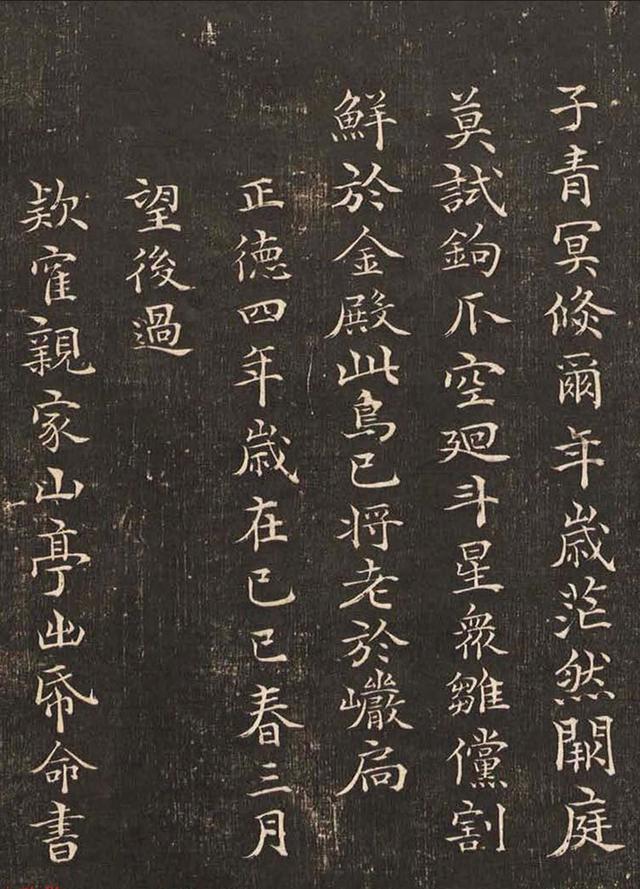 子青冥倏爾年歲茫然闕庭
莫試鉤爪空廻斗星衆雛儻割
鮮於金殿此鳥已將老於巖扃
正德四年歲在己巳春三月
望後過
欵寉親家山亭出帋命書